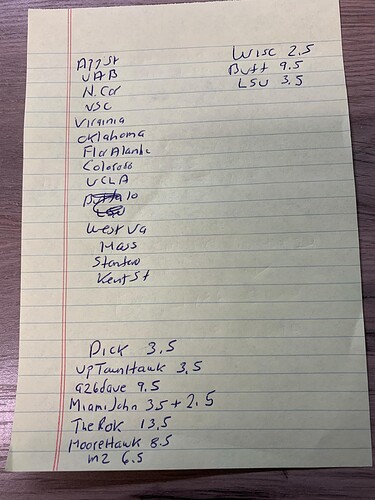 App St
UAB
N. Car
USC
Virginia
Oklahoma
Flor Alantic
Colorado
UCLA
Buffalo
LSU
West Va
Mass
Stanford
Kent St
Wisc 2.5
Buff 9.5
LSU 3.5
Dick 3.5
UpTownHawk 3.5
a26dave 9.5
MiamiJohn 3.5 + 2.5
TheRok 13.5
MooreHawk 8.5
m2 6.5